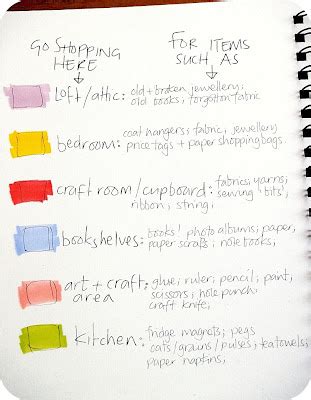 GO SHOPPING HERE
FOR ITEMS SUCH AS
loft/attic: old + broken jewellery;
old books; forgotten fabric
bedroom: coat hangers; fabric, jewellery;
price tags + paper shopping bags.
craft room/cupboard: fabrics; yarns;
sewing 'bits'
ribbon; string;
bookshelves: books' photo albums; paper,
paper scraps; note books,
art + craft area: glue; ruler; pencil; paint,
scissors; hole punch;
craft knife,
kitchen: fridge magnets; pegs
oats/grains/pulses; teatowels;
paper napkins;